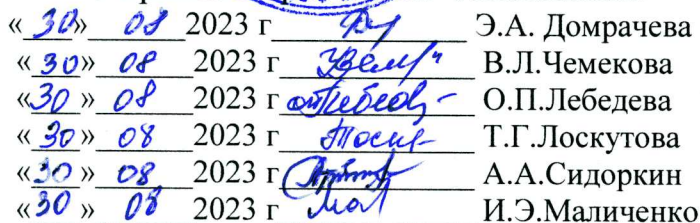 «30» 08 2023 г Э.А. Домрачева
«30» 08 2023 г В.Л.Чемекова
«30» 08 2023 г О.П.Лебедева
«30» 08 2023 г Т.Г.Лоскутова
«30» 08 2023 г А.А.Сидоркин
«30» 08 2023 г И.Э.Маличенко